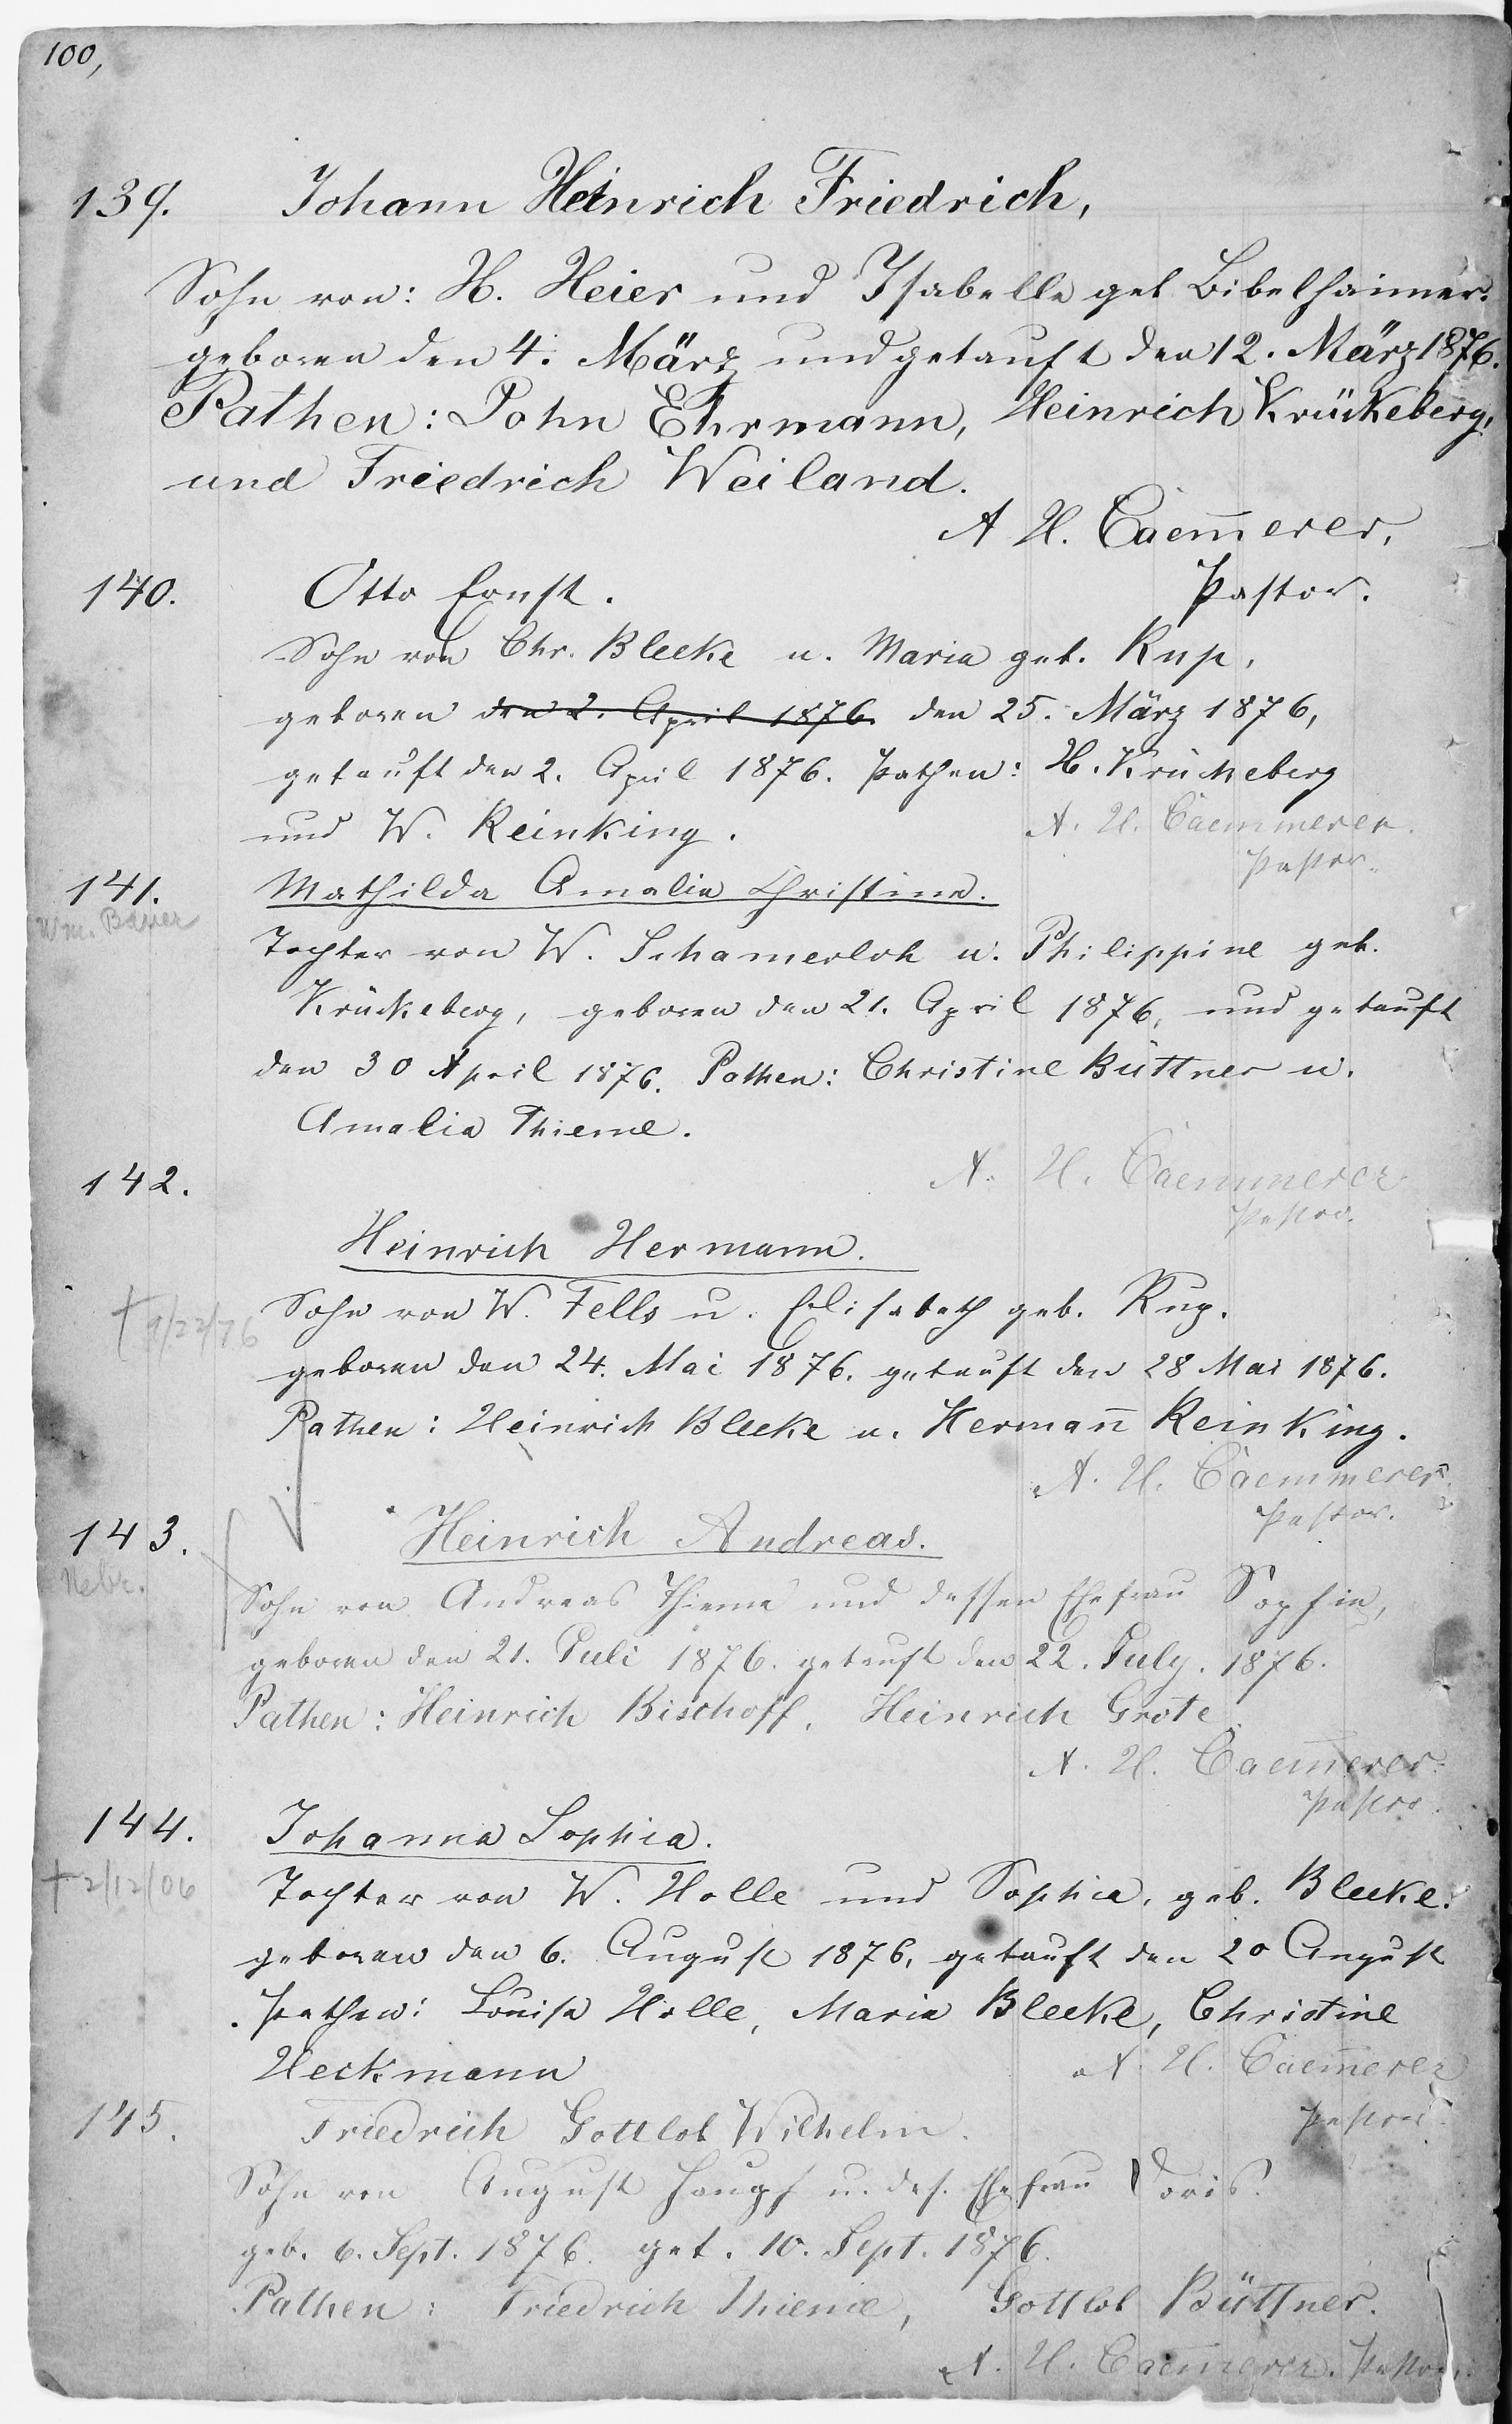 100,
139. Johann Heinrich Friedrich,
Sohn von: H. Heier und Isabelle geb Bibelhaimer.
geboren den 4. März und getauft den 12. März 1876.
Pathen: John Ehrmann, Heinrich Krückeberg,
und Friedrich Weiland.
A H. Caem̄erer,
Pastor.
140. Otto Ernst.
Sohn von Chr. Blecke u. Maria geb. Rup,
geboren den 2. April 1876. den 25. März 1876,
getauft den 2. April 1876. Pathen: H. Krückeberg
und W. Reinking.
A. H. Caemmerer.
Pastor.
141. Mathilda Amalia Christina.
Wm. Bauer
Tochter von W. Schamerloh u. Philippine geb.
Krückeberg, geboren den 21. April 1876, und getauft
den 30 April 1876. Pathen: Christine Büttner u.
Amalia Thieme.
A. H. Caemmerer
Pastor.
142.
Heinrich Hermann.
† 9/22/76
Sohn von W. Fells u. Elisabeth geb. Rup.
geboren den 24. Mai 1876. getauft den 28 Mai 1876.
Pathen: Heinrich Blecke u. Herman̄ Reinking.
A. H. Caemmerer
Pastor.
143. Heinrich Andreas.
Nebr.
Sohn von Andreas Thieme und dessen Ehefrau Sophie,
geboren den 21. Juli 1876. getauft den 22. July. 1876.
Pathen: Heinrich Bischoff, Heinrich Grote
A. H. Caem̄erer.
Pastor.
144. Johanna Sophia.
† 2/12/06
Tochter von W. Holle und Sophia, geb. Blecke.
geboren den 6. August 1876, getauft den 20 August
Pathen: Louise Holle, Maria Blecke, Christine
Heckmann
A. H. Caem̄erer
Pastor.
145. Friedrich Gottlob Wilhelm.
Sohn von August u. des. Ehefrau Doris.
geb. 6. Sept. 1876. get. 10. Sept. 1876.
Pathen: Friedrich Thieme, Gottlob Büttner.
A. H. Caem̄erer. Pastor.